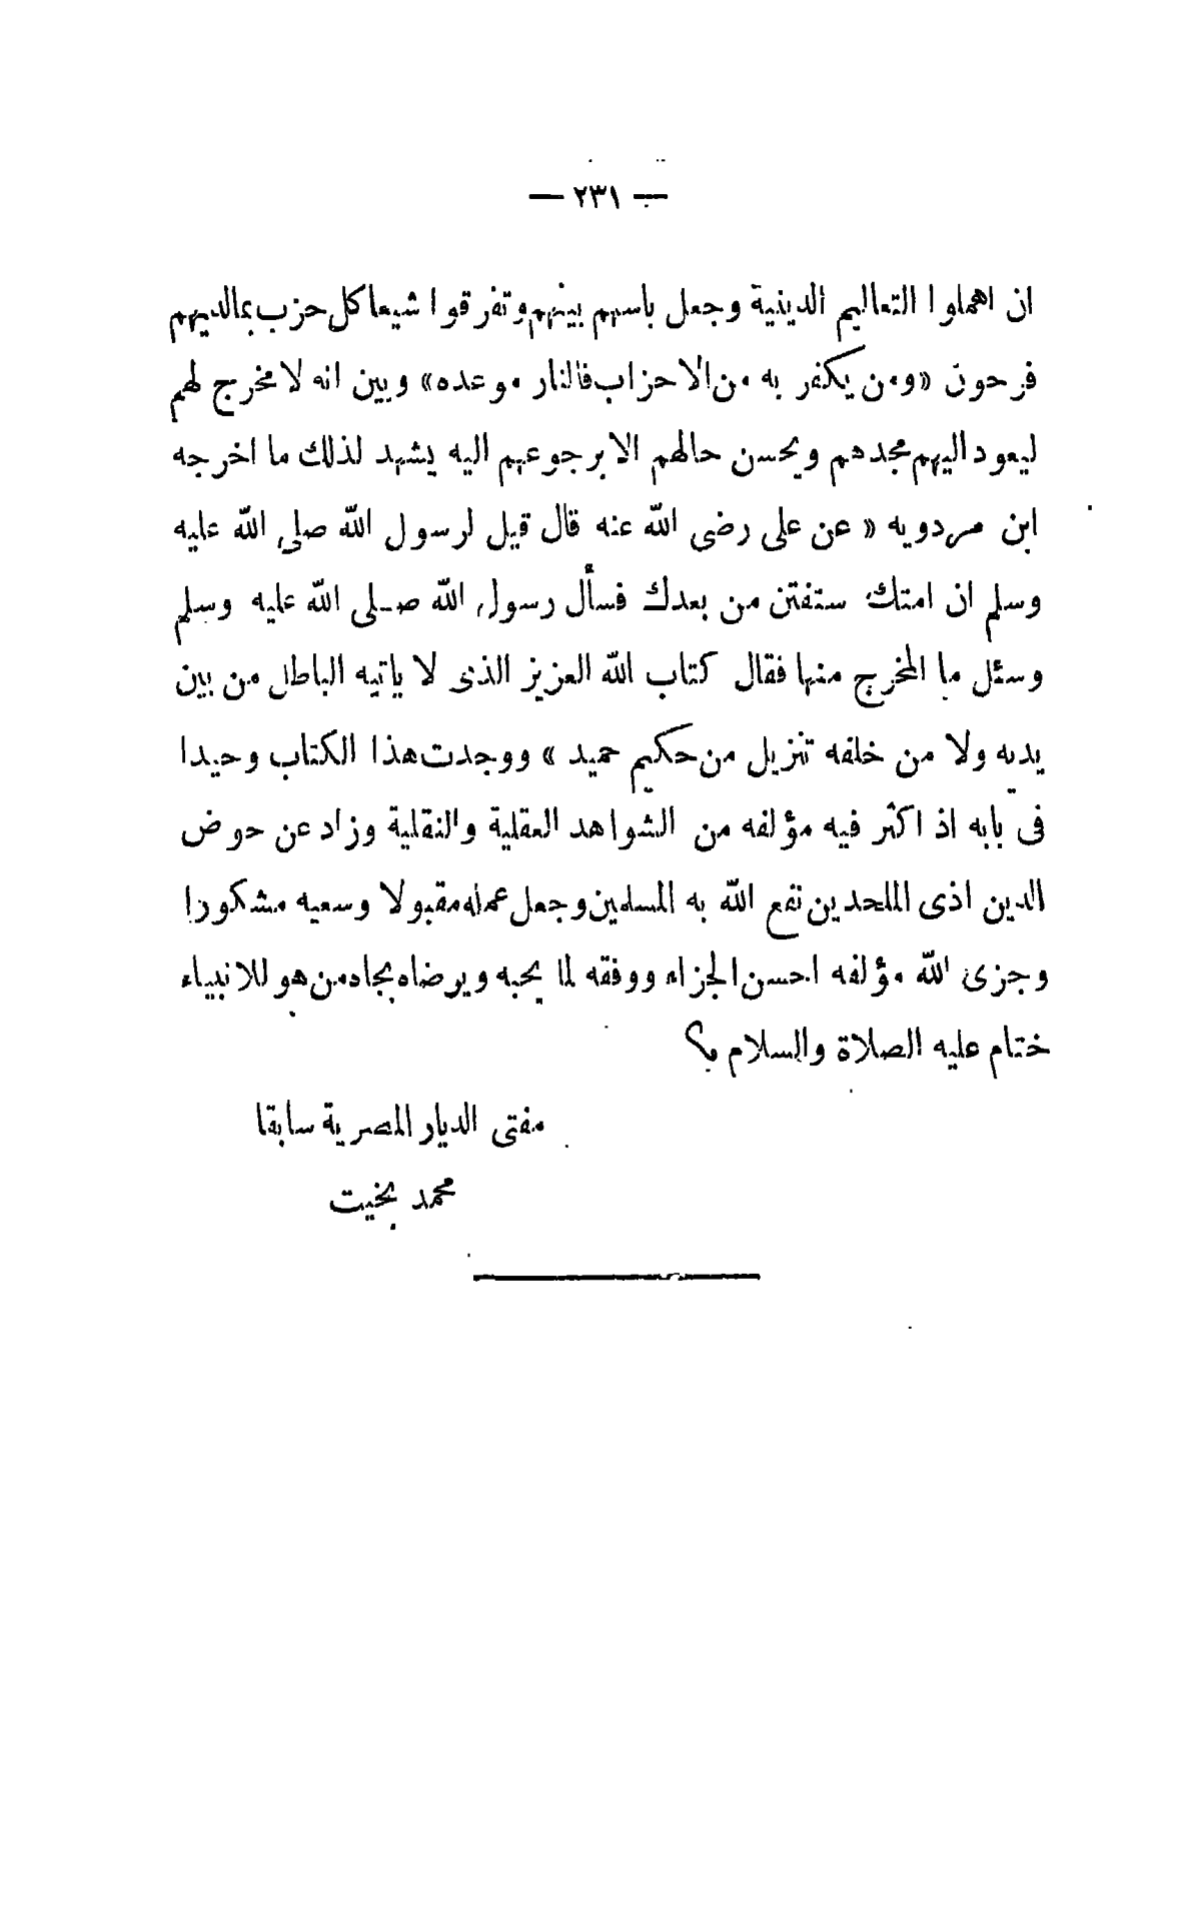 — ٢٣١ —
ان اهملوا التعاليم الدينية وجعل باسهم بينهم وتفرقوا شيعا كل حزب بمالديهم
فرحون «ومن يكفر به من الاحزاب فالنار موعده» وبين انه لا مخرج لهم
ليعود اليهم مجدهم ويحسن حالهم الا برجوعهم اليه يشهد لذلك ما اخرجه
ابن مردويه « عن على رضى الله عنه قال قيل لرسول الله صلى الله عليه
وسلم ان امتك ستفتن من بعدك فسأل رسول الله صلى الله عليه وسلم
وسئل ما المخرج منها فقال كتاب الله العزيز الذى لا ياتيه الباطل من بين
يديه ولا من خلفه تنزيل من حكيم حميد » ووجدت هذا الكتاب وحيدا
فى بابه اذ اكثر فيه مؤلفه من الشواهد العقلية والنقلية وزاد عن حوض
الدين اذى الملحدين نفع الله به المسلمين وجعل عمله مقبولا وسعيه مشكورا
وجزى الله مؤلفه احسن الجزاء ووفقه لما يحبه ويرضاه بجاه من هو للانبياء
ختام عليه الصلاة والسلام
مفتى الديار المصرية سابقا
محمد بخيت